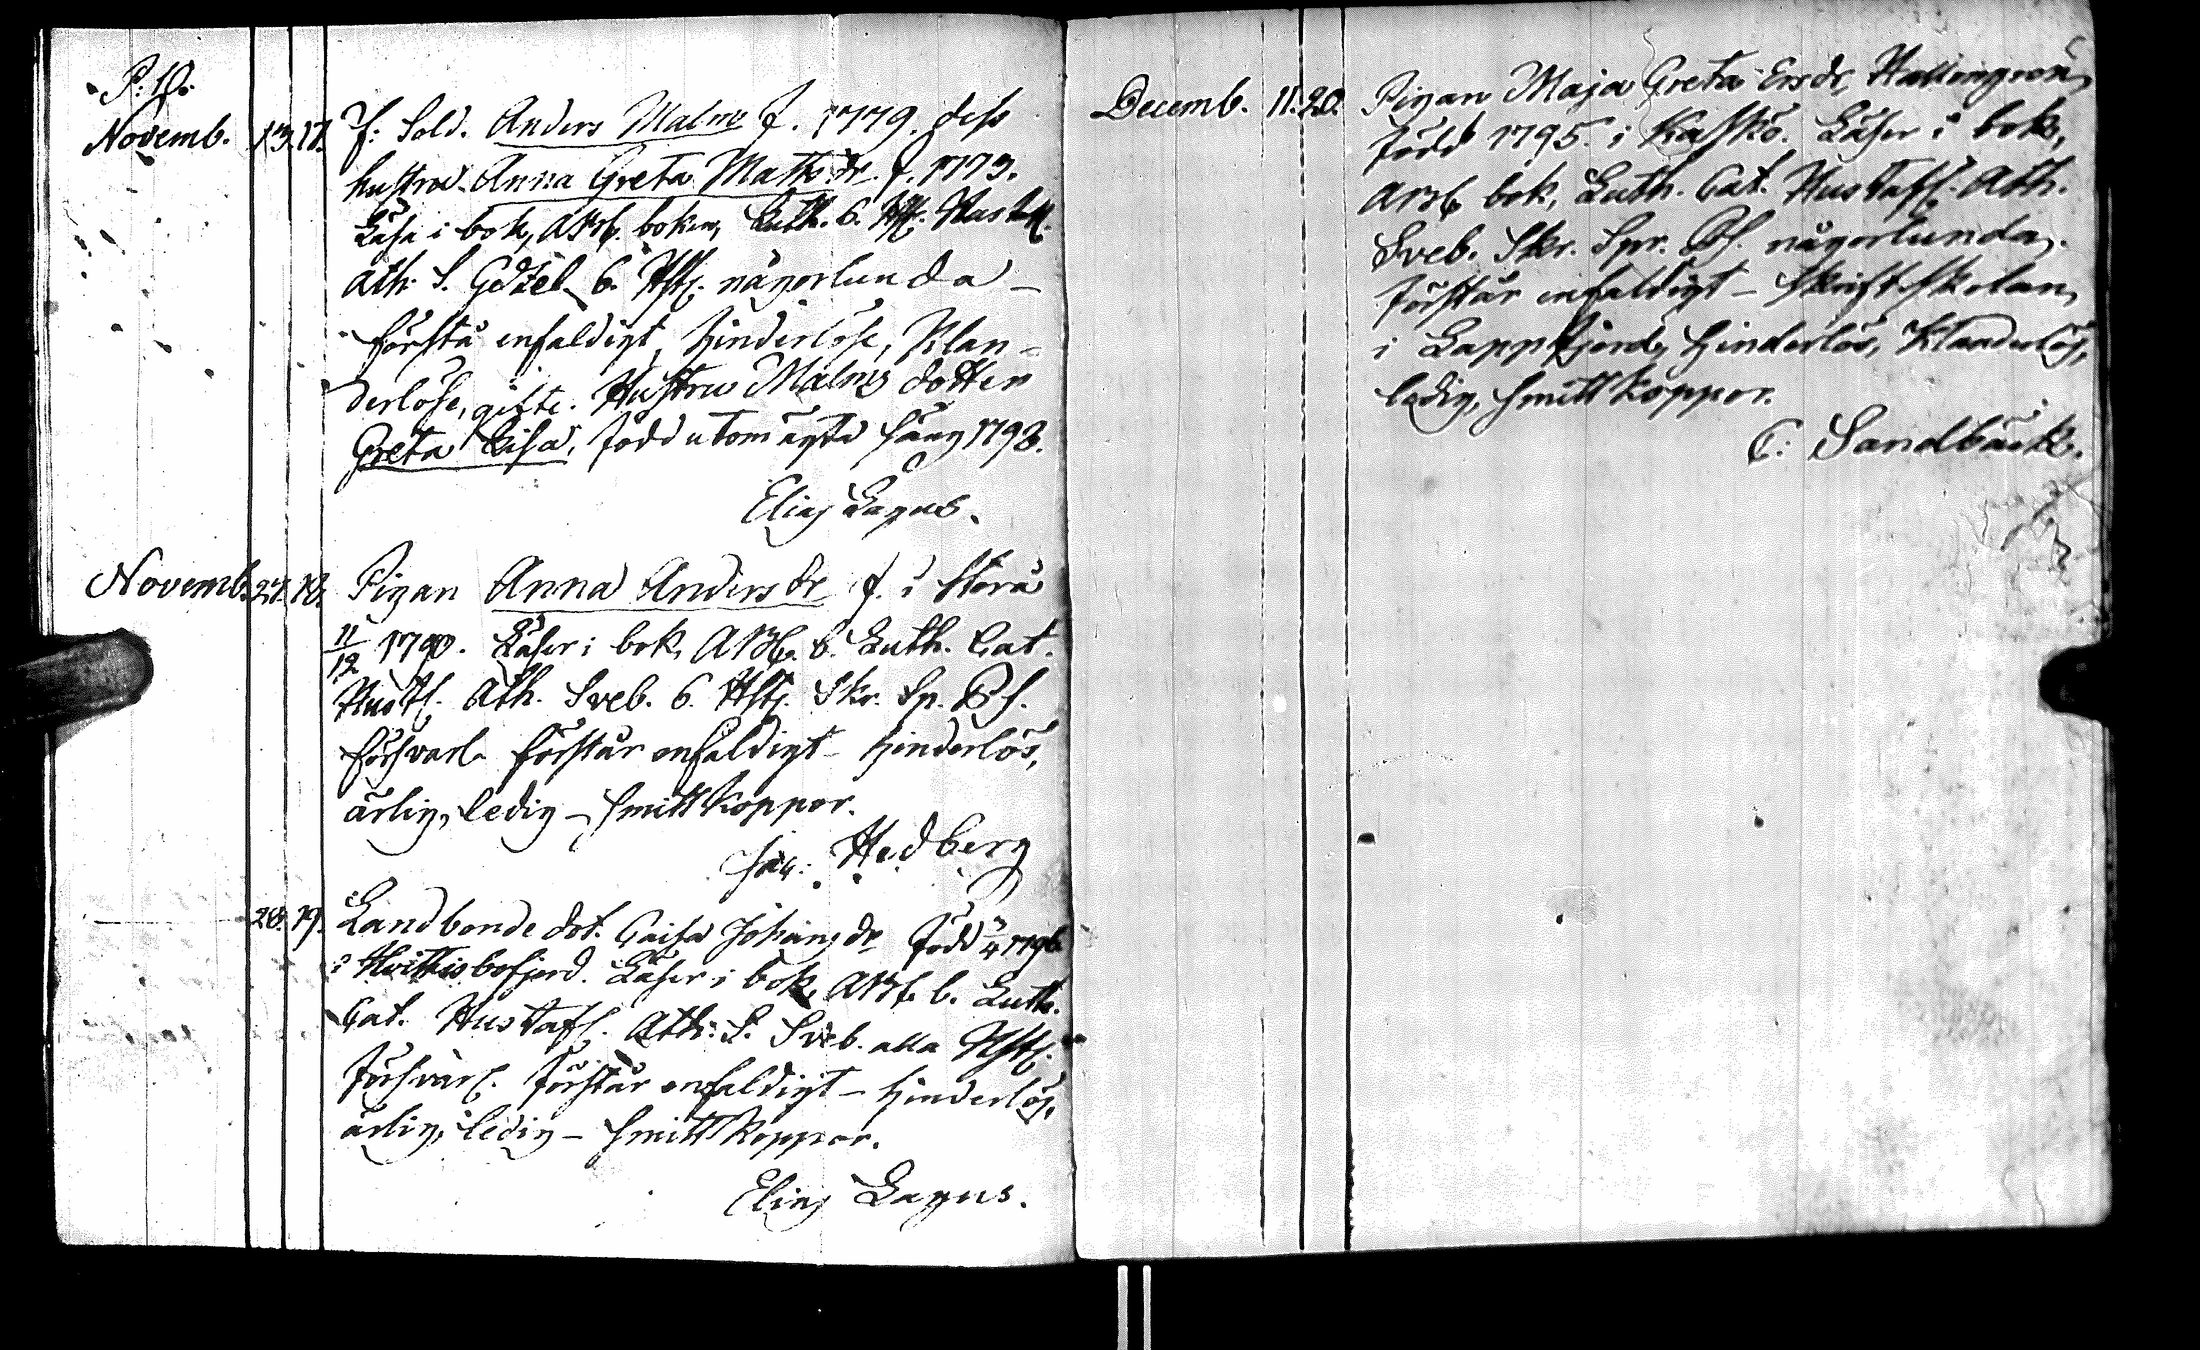 P. 10.
Novemb. 13. 17. F: Sold. Anders Malm f. 1779. dess
hustru Anna Greta Mattsdr. f. 1773.
Läsa i bok, ABC boken, Luth. C. Hustafl.
Ath. S. 6. Hst. någorlunda –
förstå enfaldigt, hinderlöse, Klan-
derlöse, gifte. Hustru Malms dotter
Greta Caisa, född utom ägta säng 1793.
Elias Lagus.
Novemb. 27. 18. Pigan Anna Andersdr f. i Storå
11/12 1790. Läser i bok, ABC b. Luth. Cat.
Hustfl. Ath. Sveb. 6. Hst. Skr. Sp. Bs.
försvarl. förstår enfaldigt – hinderlös,
ärlig, ledig – smittkoppor.
Jac: Hedberg
28. 19. Landbonde dot. Caisa Johansdr född 4 1796
i Hvittisbofjerd. Läser i bok, ABC b. Luth.
Cat. Hustafl. Ath: S. Sveb. alla Hst.
försvarl. förstår enfaldigt – hinderlös,
ärlig, ledig – smittkoppor.
Elias Lagus.
Decemb. 11. 20. Pigan Maja Greta Ersdr
född 1795. i Kaskö. Läser i bok,
ABC bok, Luth. Cat. Hustafl. Ath.
Sveb. Skr. Spr. Bs. någorlunda.
förstår enfaldigt – Skriftskolan
i Lappfjerd, hinderlös, Klanderlös,
ledig, smittkoppor.
C: Sandbäck.